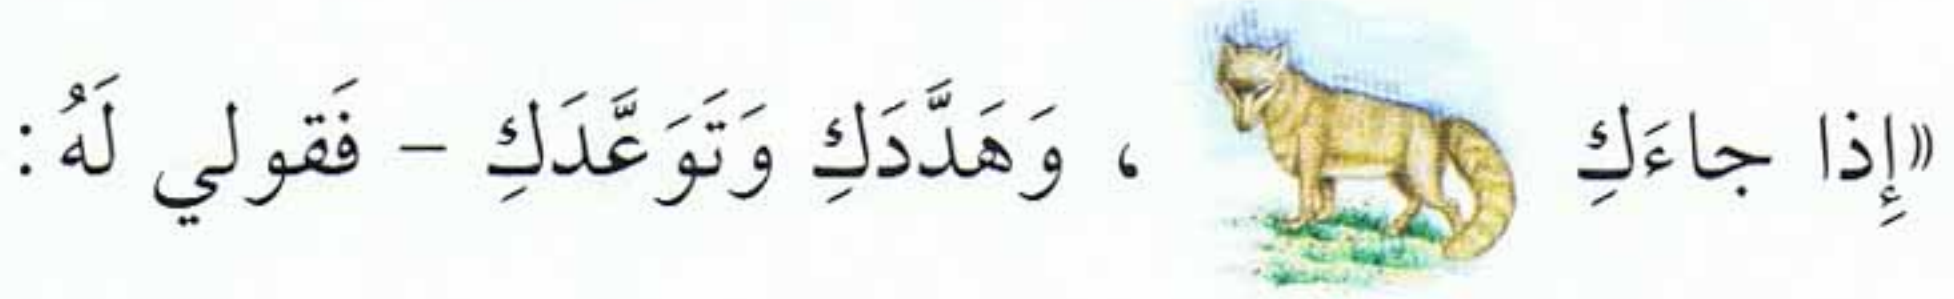 «إِذا جاءَكِ ، وَهَدَّدَكِ وَتَوَعَّدَكِ – فَقولي لَهُ :